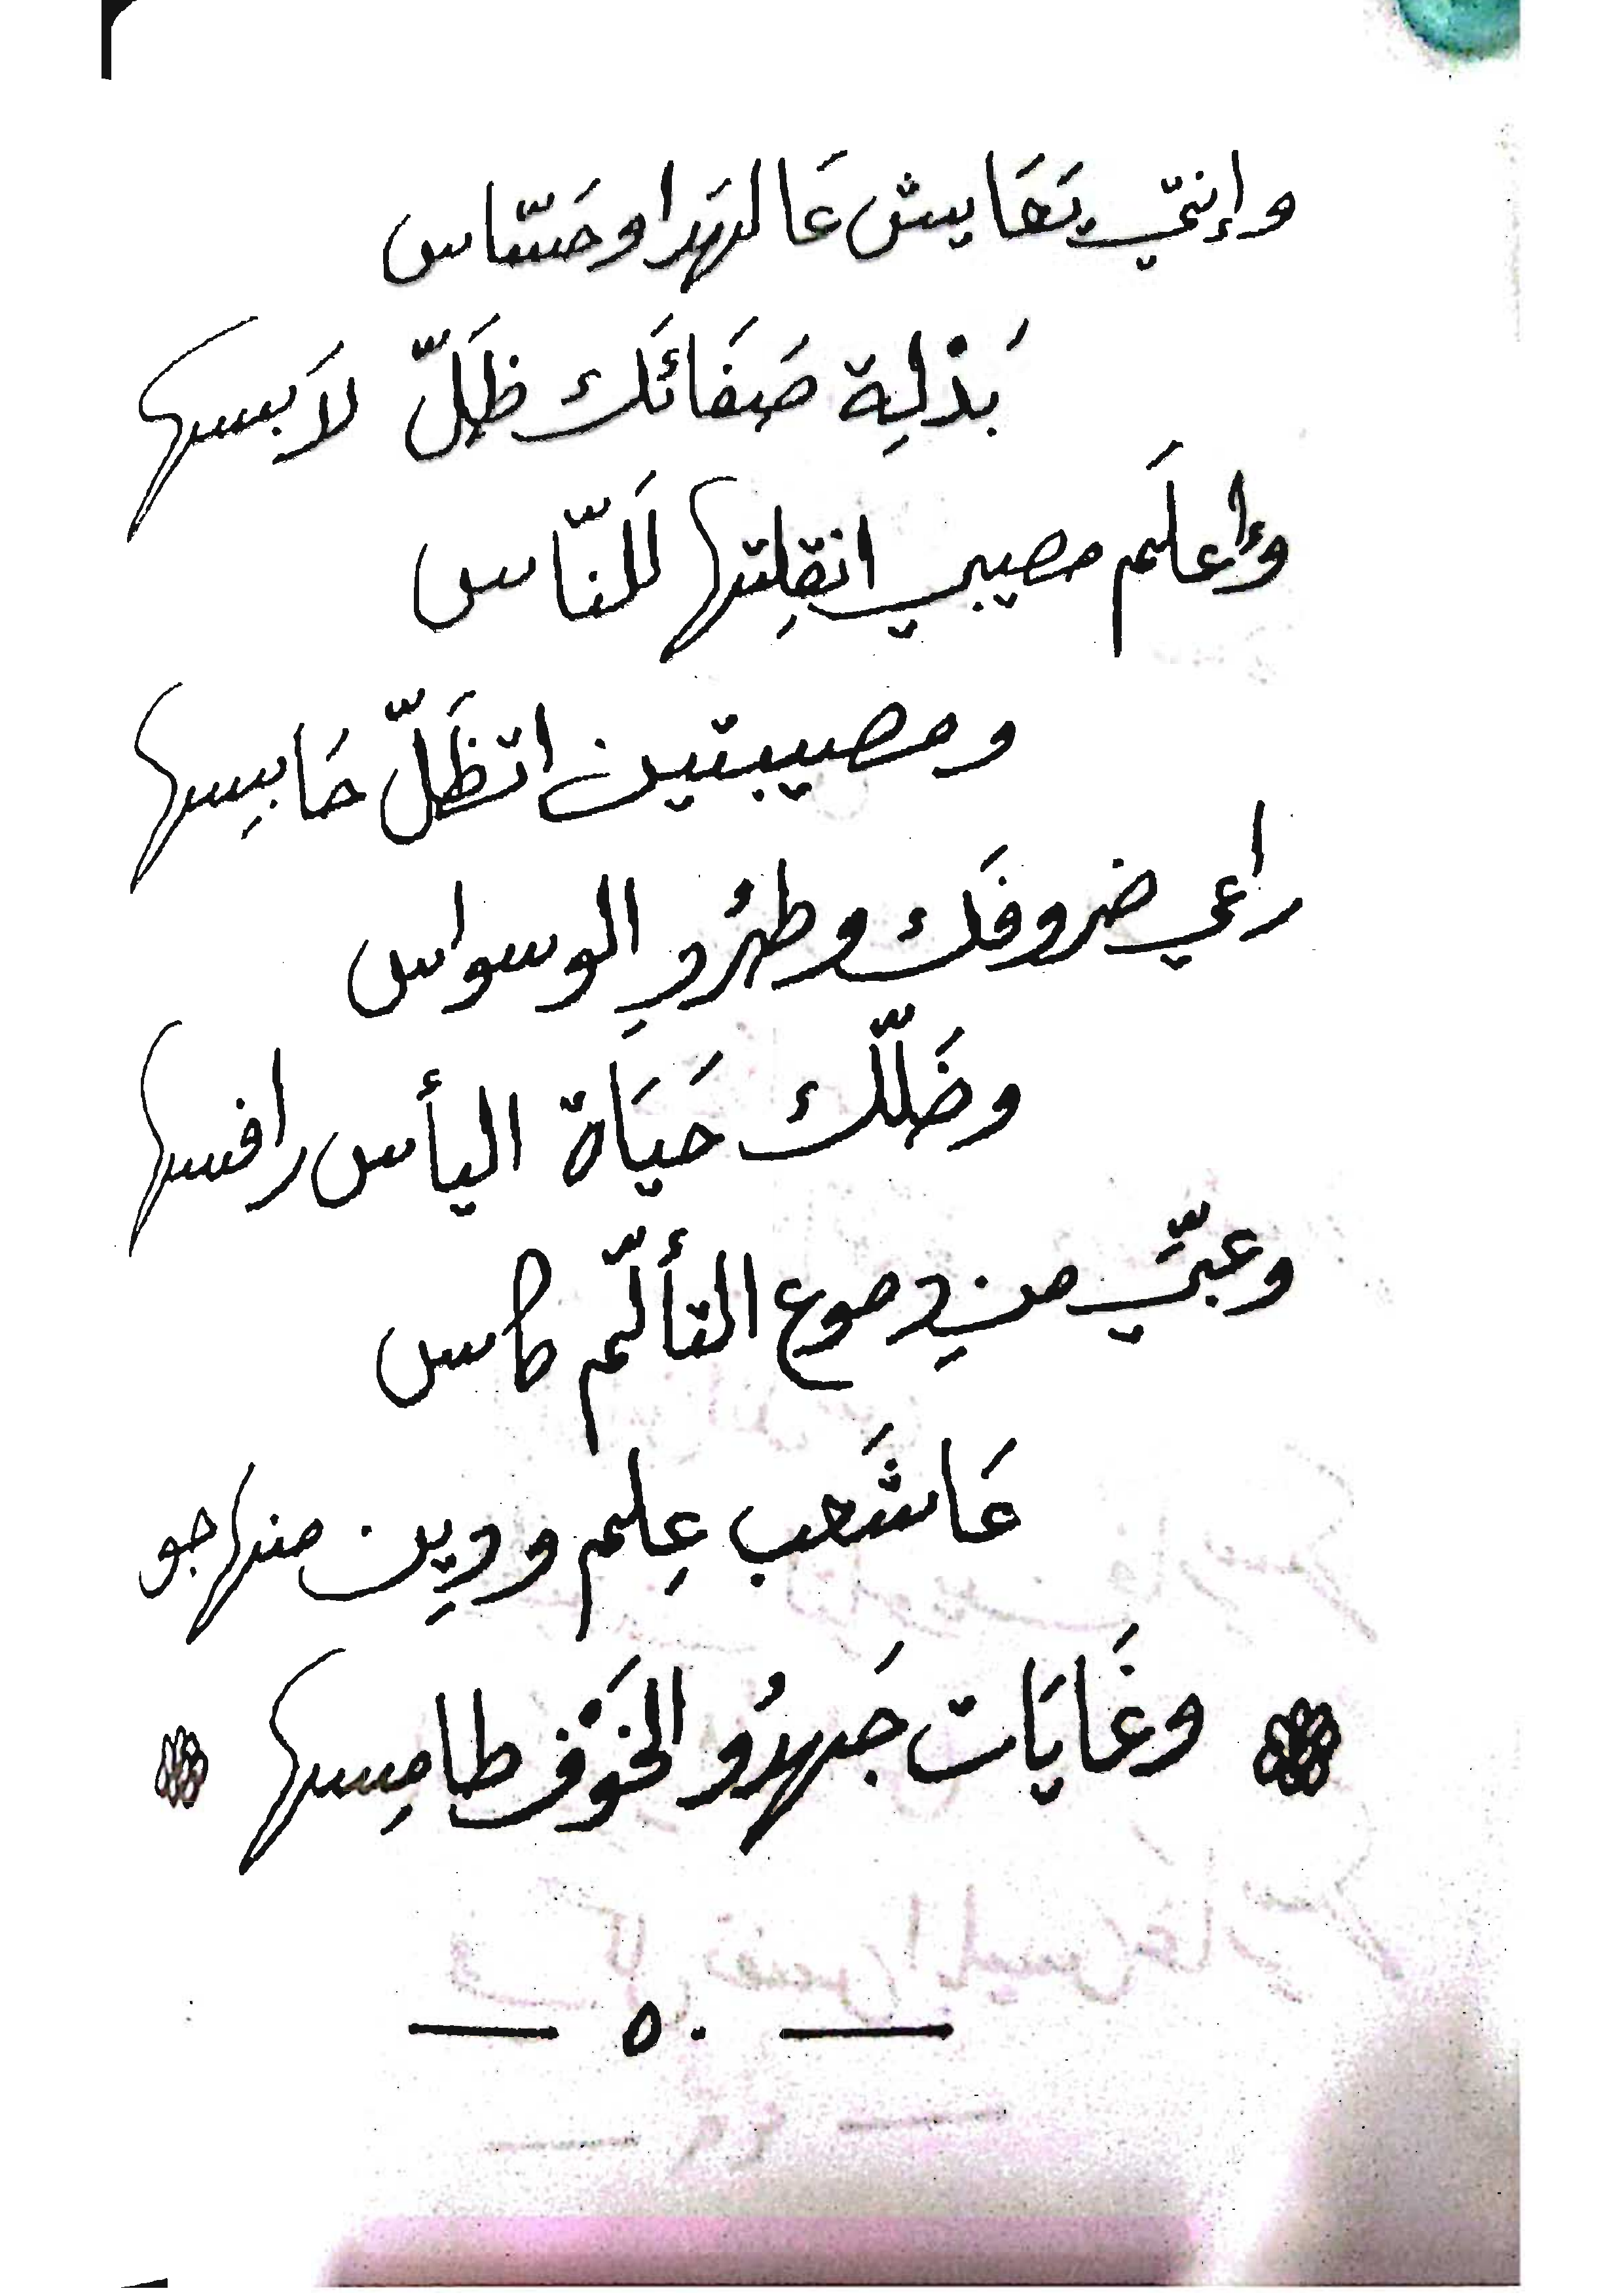 وإنتي تعَايش عَا لهَدا وحَسّاس
بَذلِة صَفَائَك ظَلّ لاَبسها
وإعلَم مصيبي انقِلتها لَلنّاس
ومصيبتين اتظَلّ حَابِسها
راعي ضروفَك وطرُدِ الوسواس
وضَلّك حَيَاة اليأس رافسها
وعبّي منِ دموع التألّم كاس
عَا شَعب عِلم ودِين منهاجو
وغَايَات جَهدُو الخَوف طامِسها
٥٠